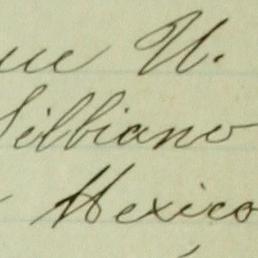 ue U.
Silbiano
Mexico